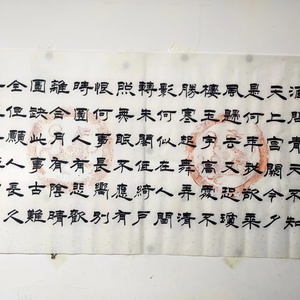 酒問青天不知
天上宮闕今夕
是何年我欲乘
風歸去又恐瓊
樓玉宇高處不
勝寒起舞弄清
影何似在人間
轉朱閣低綺戶
照無眠不應有
恨何事長嚮別
時圓人有悲歡
離合月有陰晴
圓缺此事古難
全但願人長久